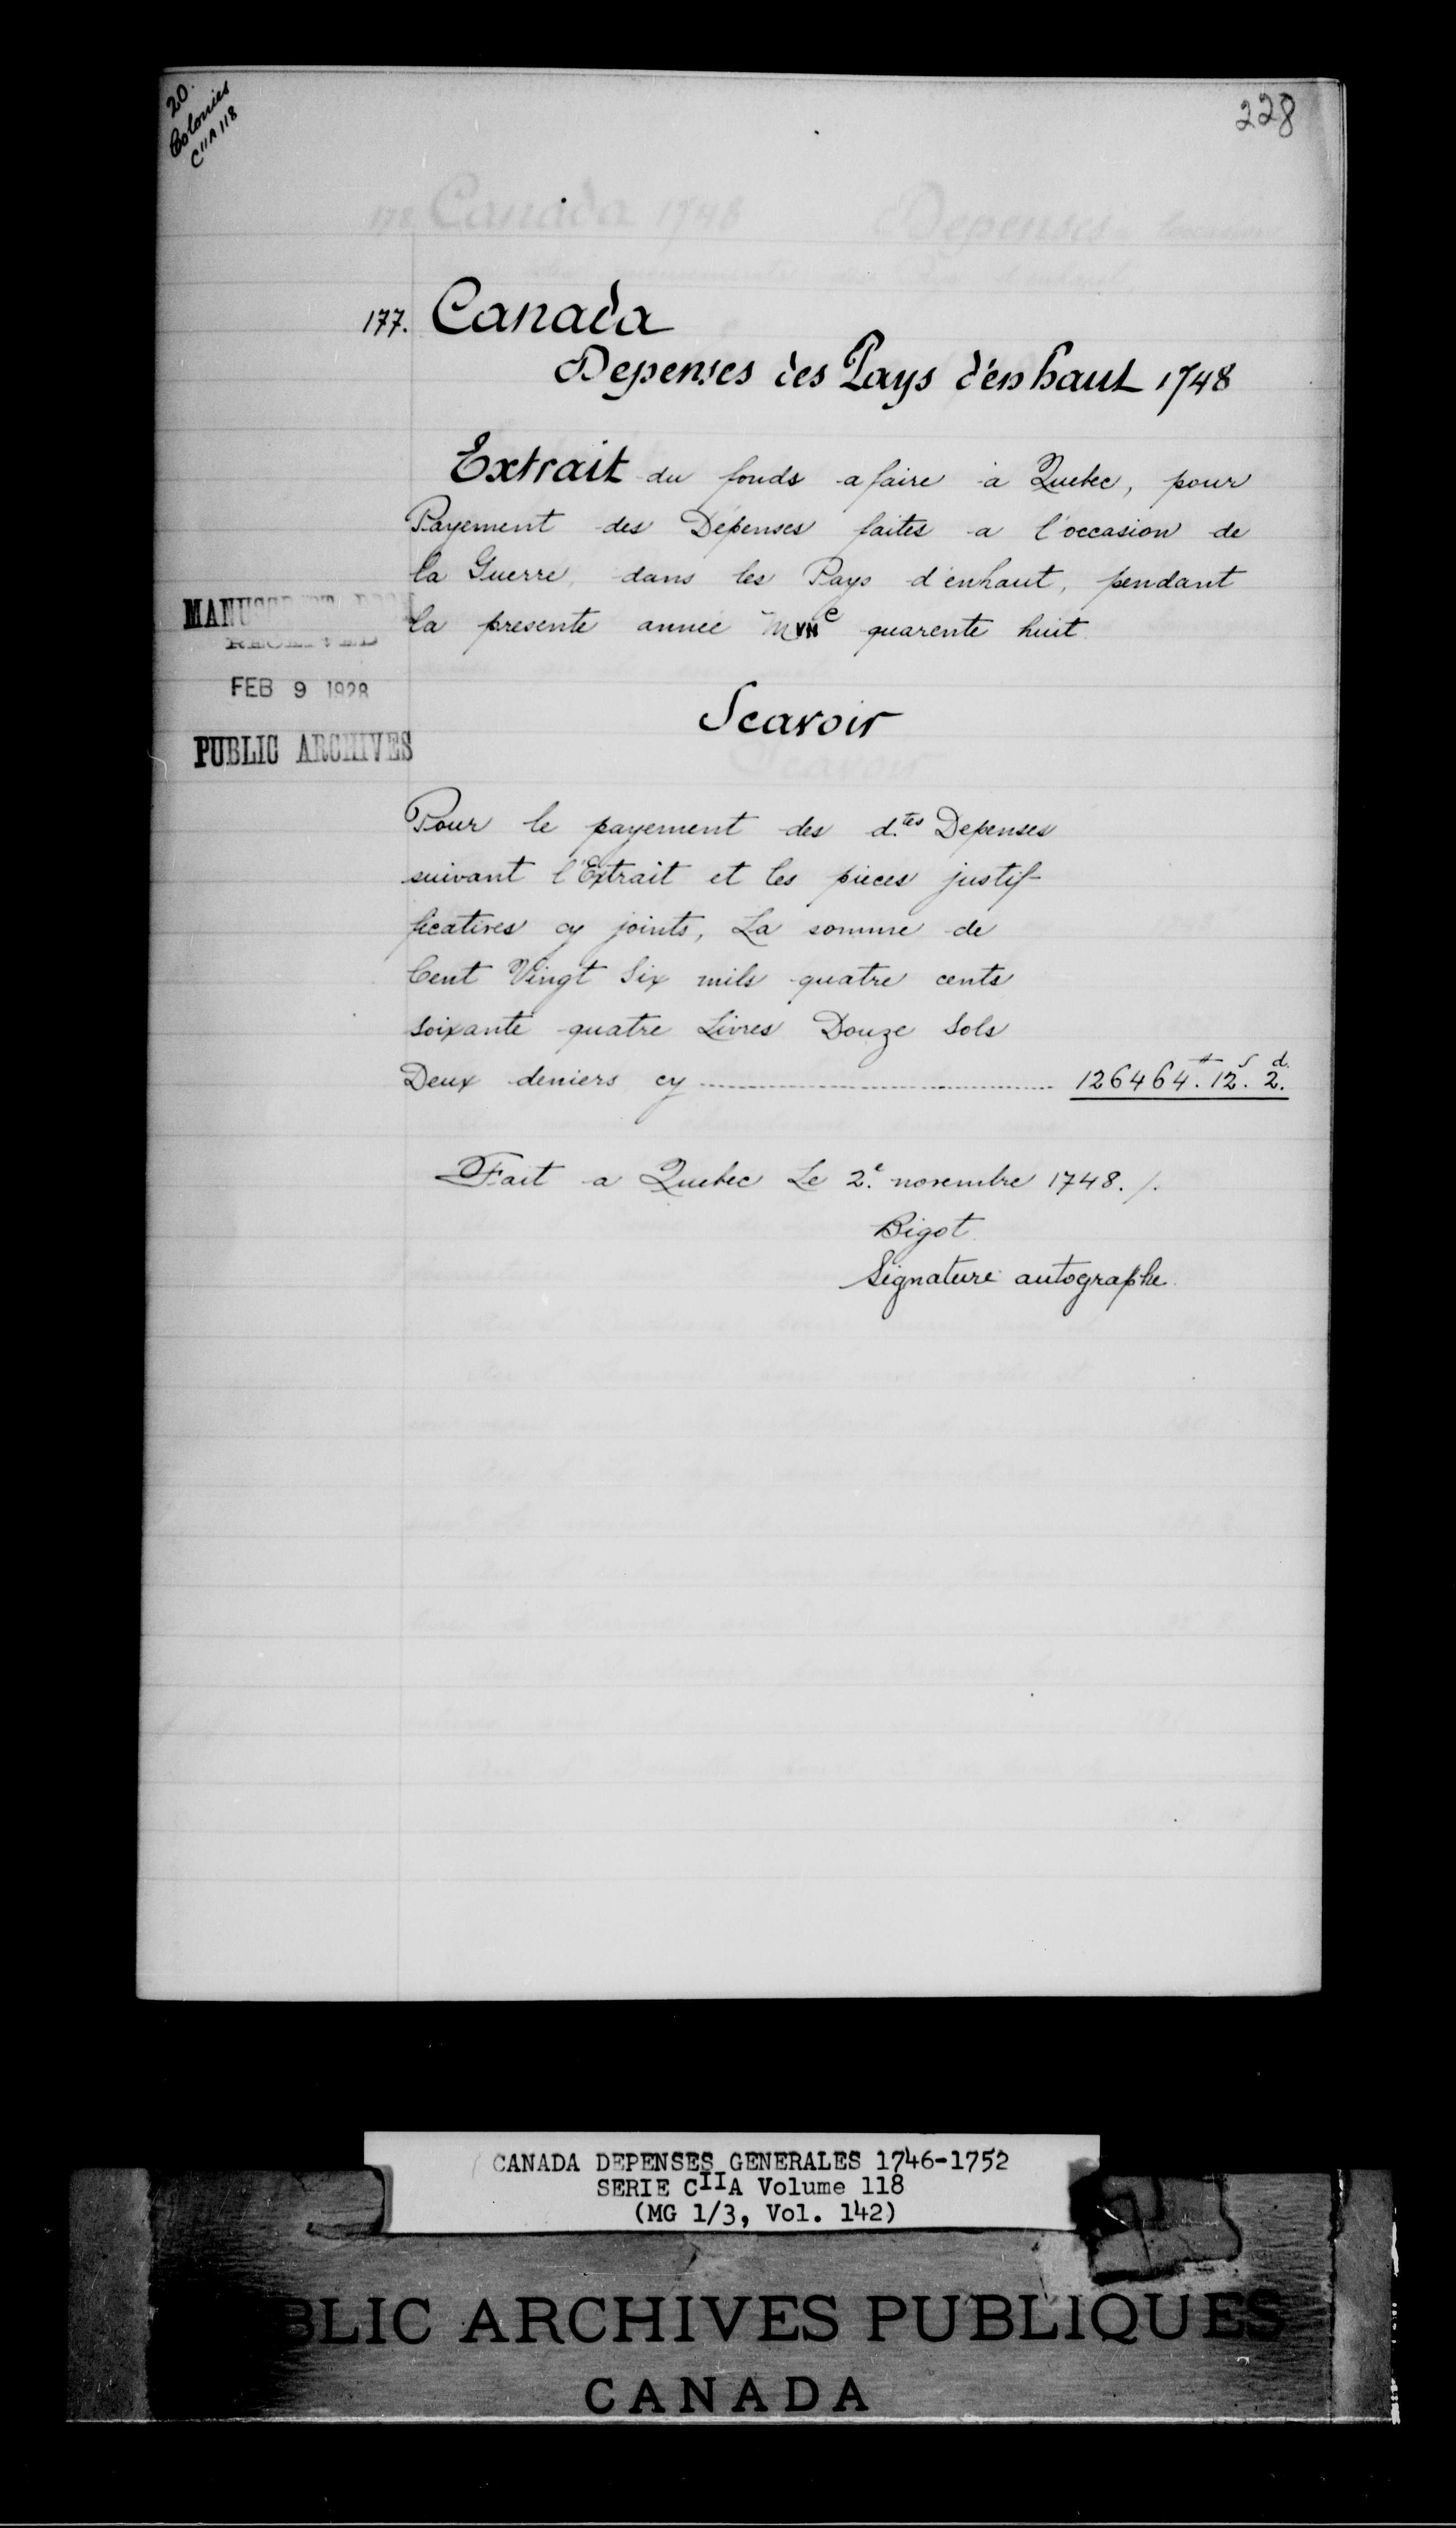 20.
Colonies
C11A 118
228
177. Canada
Depenses des Pays d'enhaut 1748
Extrait du fonds a faire a Quebec, pour
Payement des Dépenses faites a l'occasion de
la Guerre, dans les Pays d'enhaut, pendant
la presente année MVIIe quarente huit.
MANUSCRIPT
RECEIVED
FEB 9 1928
PUBLIC ARCHIVES
Scavoir
Pour le payement des d.tes Depenses
suivant l'Extrait et les pieces justif-
ficatives cy joints, La somme de
Cent Vingt Six mils quatre cents
soixante quatre Livres Douze Sols
Deux deniers cy ........ 126464.# 12.s 2.d
Fait a Quebec Le 2.e novembre 1748. /.
Bigot.
Signature autographe.
CANADA DEPENSES GENERALES 1746-1752
SERIE CIIA Volume 118
(MG 1/3, Vol. 142)
BLIC ARCHIVES PUBLIQUES
CANADA